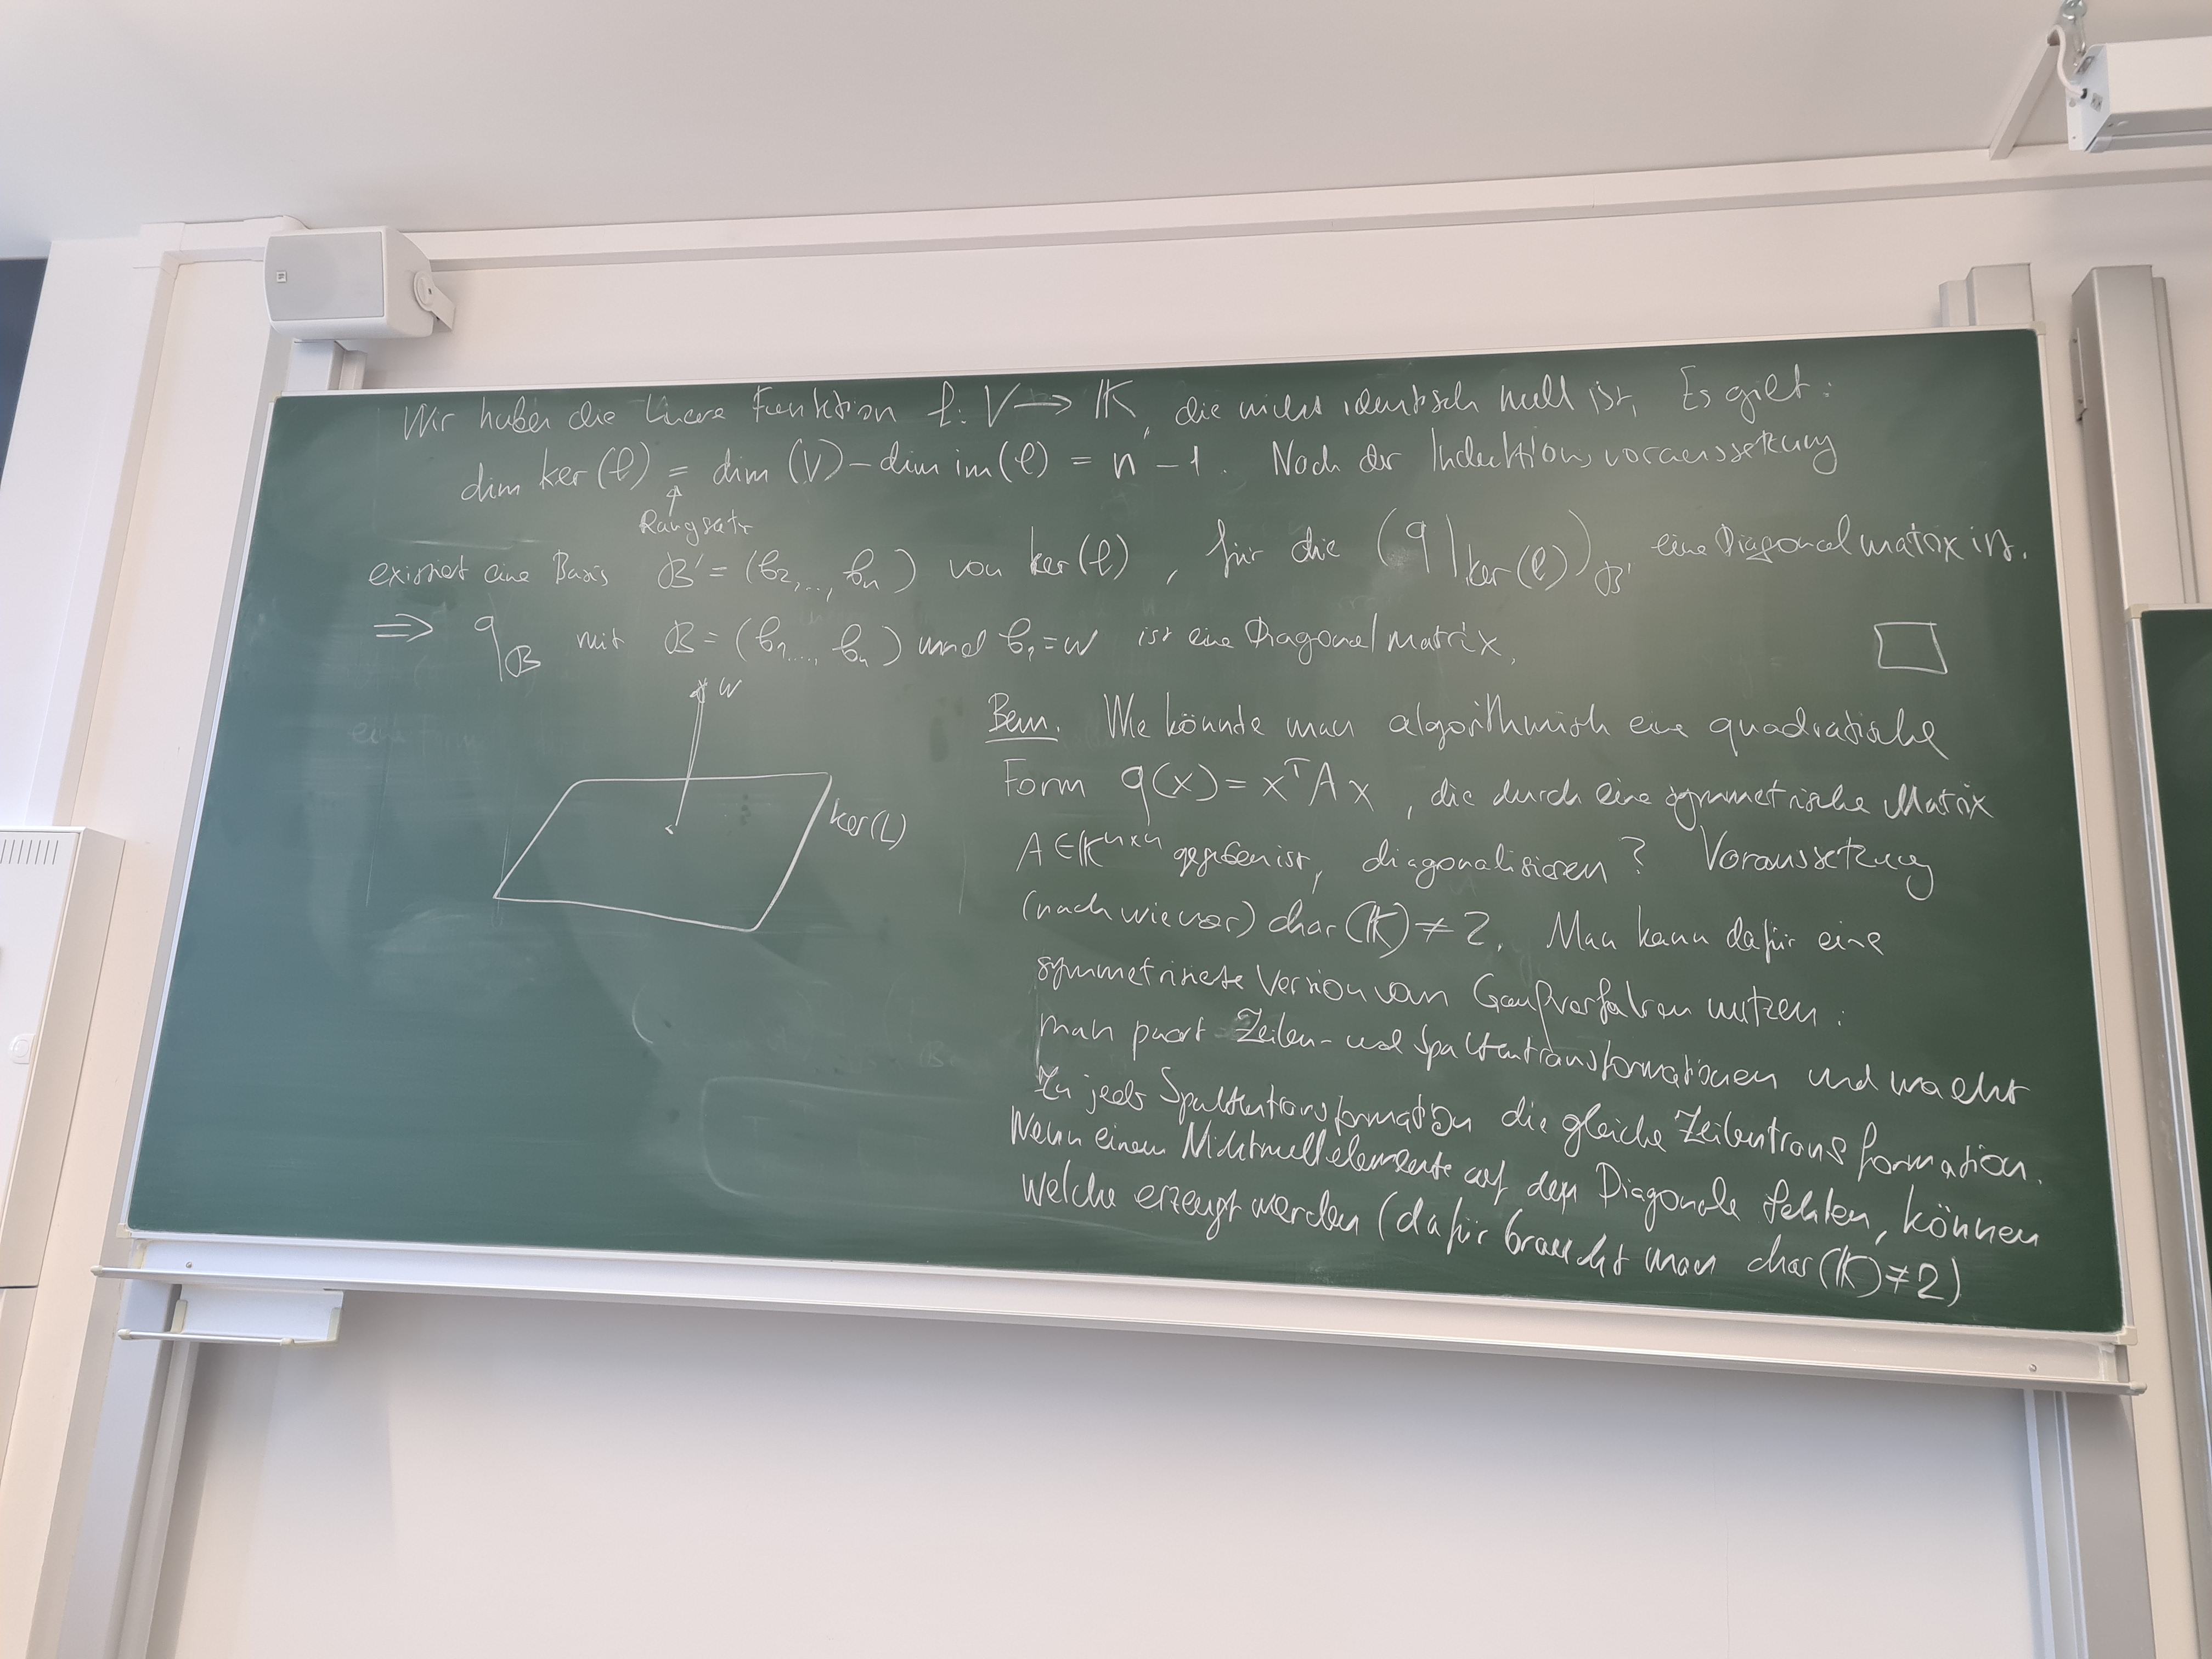 Wir haben die lineare Funktion l: V → 𝕂, die nicht identisch null ist. Es gilt:
dim ker(l) = dim (V) – dim im(l) = n – 1. Nach der Induktionsvoraussetzung
↑
Rangsatz
existiert eine Basis B' = (b₂,..., bₙ) von ker(l), für die (q|ker(l))B' eine Diagonalmatrix ist.
⇒ qB mit B = (b₁,..., bₙ) und b₁ = w ist eine Diagonalmatrix.
w
ker(L)
Bem. Wie könnte man algorithmisch eine quadratische
Form q(x) = xᵀA x, die durch eine symmetrische Matrix
A ∈ 𝕂ⁿˣⁿ gegeben ist, diagonalisieren? Voraussetzung
(nach wie vor) char(𝕂) ≠ 2. Man kann dafür eine
symmetrisierte Version vom Gaußverfahren nutzen:
man paart Zeilen- und Spaltentransformationen und macht
zu jeder Spaltentransformation die gleiche Zeilentransformation.
Wenn einem Nichtnullelemente auf der Diagonale fehlen, können
welche erzeugt werden (dafür braucht man char(𝕂) ≠ 2)